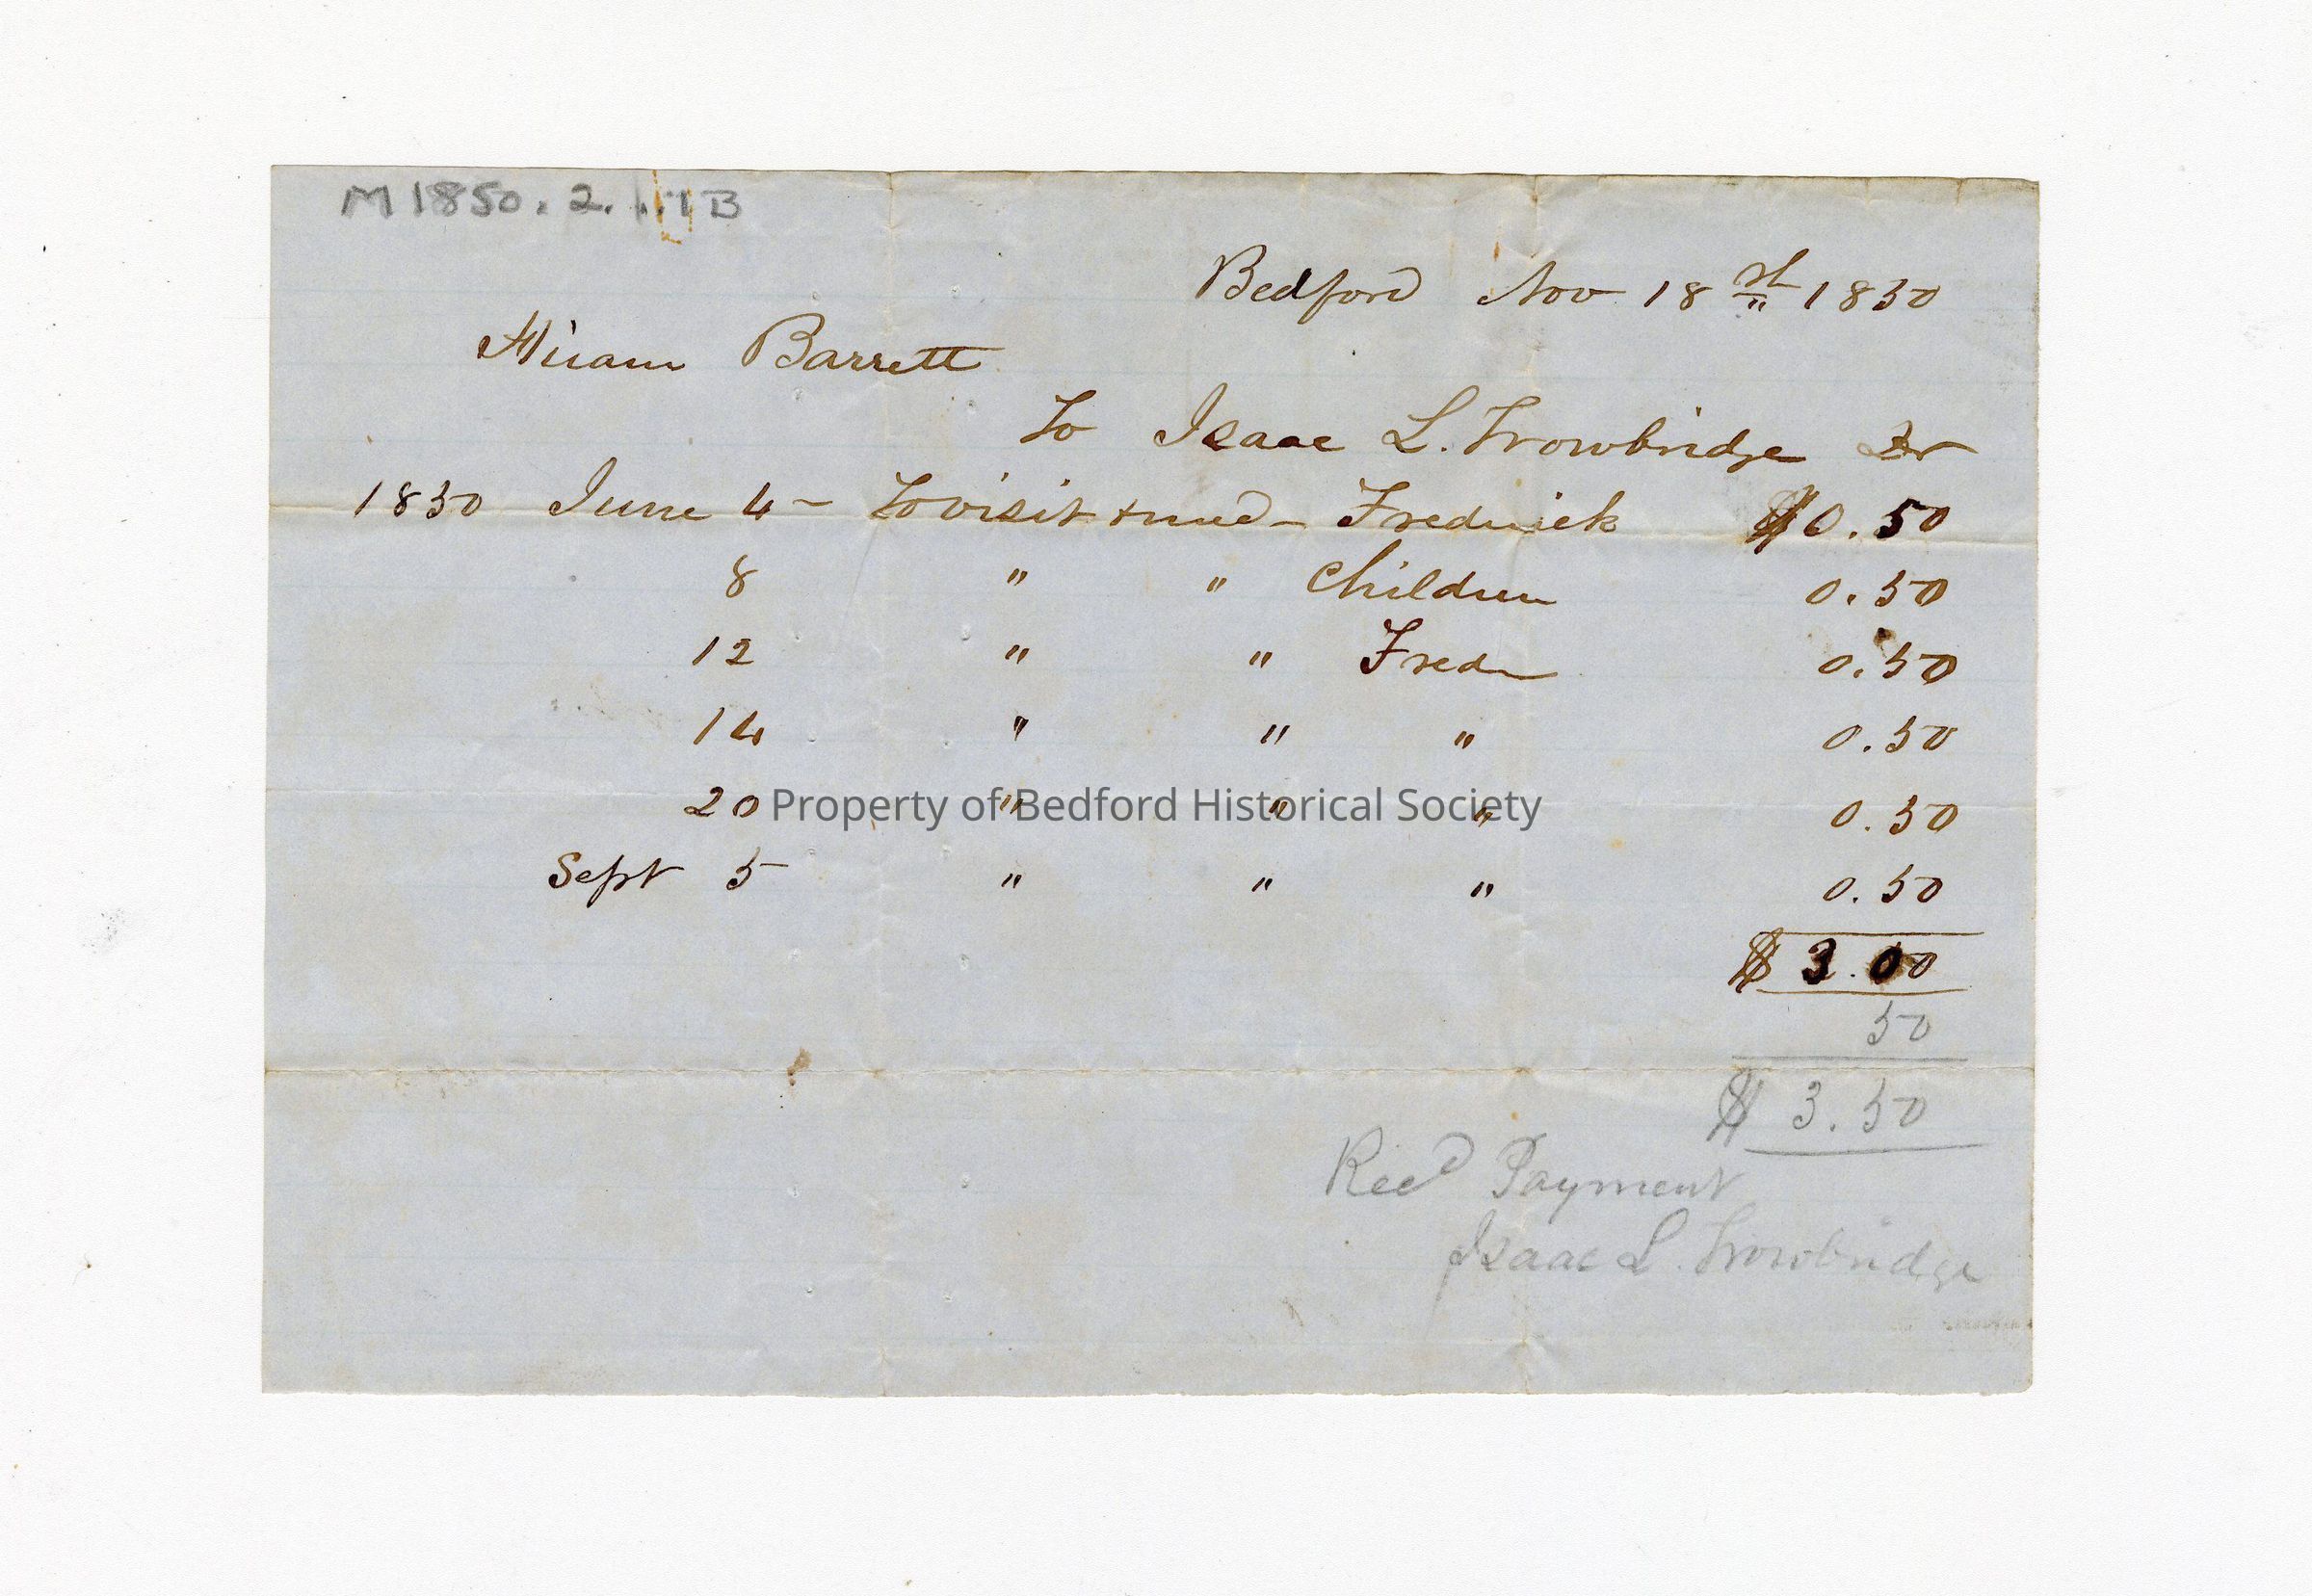 M1850.2.1.1B
Bedford Nov 18th 1850
Hiram Barrett
To Isaac L. Trowbridge Dr
1850 June 4 - To visit + med- Frederick $0.50
8 " " Children 0.50
12 " " Fred 0.50
14 " " " 0.50
20 " " " 0.50
Property of Bedford Historical Society
Sept 5 " " " 0.50
$3.00
50
$3.50
Recd Payment
Isaac L. Trowbridge